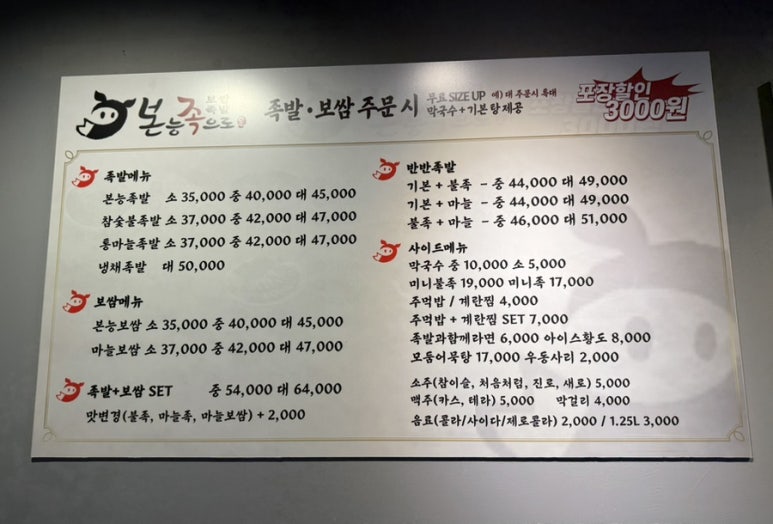 본능족으로
보쌈
족발
족발·보쌈 주문 시
무료 SIZE UP 예) 대 주문시 특대
막국수+기본탕 제공
포장할인
3000원
족발메뉴
본능족발 소 35,000 중 40,000 대 45,000
참숯불족발 소 37,000 중 42,000 대 47,000
통마늘족발 소 37,000 중 42,000 대 47,000
냉채족발 대 50,000
보쌈메뉴
본능보쌈 소 35,000 중 40,000 대 45,000
마늘보쌈 소 37,000 중 42,000 대 47,000
족발+보쌈 SET 중 54,000 대 64,000
맛변경(불족, 마늘족, 마늘보쌈) + 2,000
반반족발
기본 + 불족 - 중 44,000 대 49,000
기본 + 마늘 - 중 44,000 대 49,000
불족 + 마늘 - 중 46,000 대 51,000
사이드메뉴
막국수 중 10,000 소 5,000
미니불족 19,000 미니족 17,000
주먹밥 / 계란찜 4,000
주먹밥 + 계란찜 SET 7,000
족발과함께라면 6,000 아이스황도 8,000
모둠어묵탕 17,000 우동사리 2,000
소주(참이슬, 처음처럼, 진로, 새로) 5,000
맥주(카스, 테라) 5,000 막걸리 4,000
음료(콜라/사이다/제로콜라) 2,000 / 1.25L 3,000